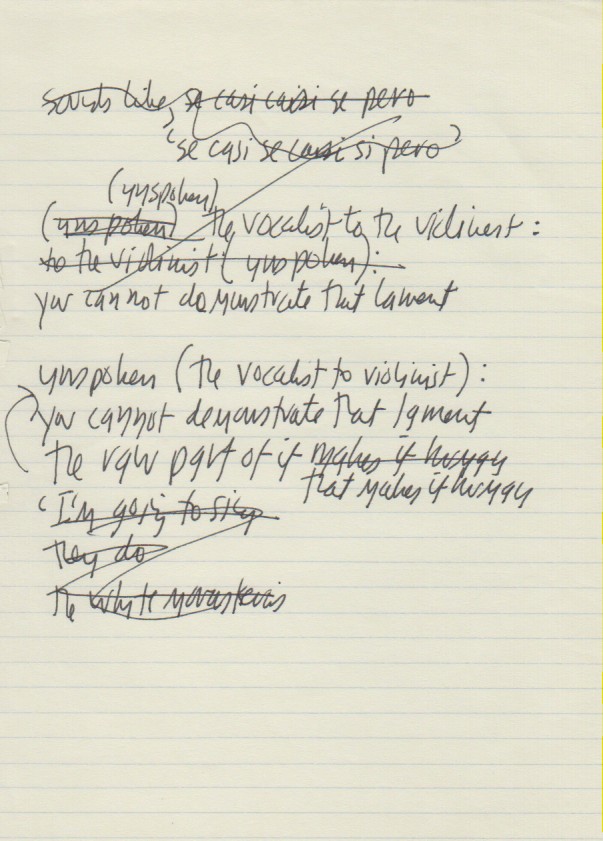 sounds like, se casi caisi se pero
'se casi se caisi si pero'
(unspoken)
(unspoken) the vocalist to the violinest:
to the violinist (unspoken):
you cannot demonstrate that lament
unspoken (the vocalist to violinist):
you cannot demonstrate that lament
the raw part of it makes it human
that makes it human
'I'm going to sing
they do
the white